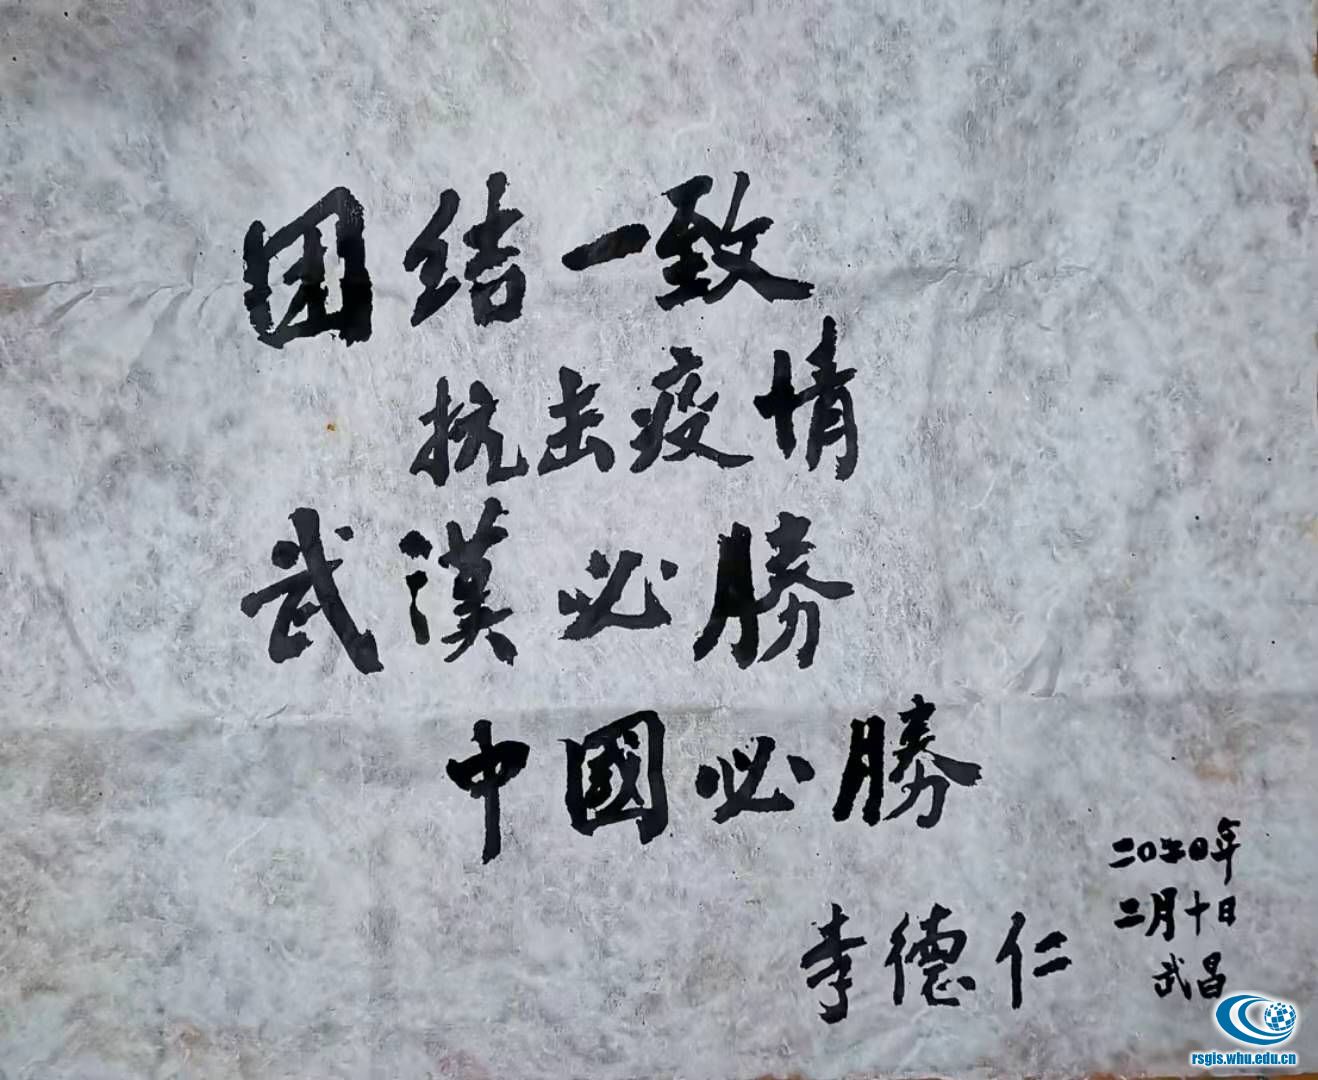 团结一致
抗击疫情
武漢必勝
中國必勝
李德仁
二〇二〇年
二月十日
武昌
rsgis.whu.edu.cn